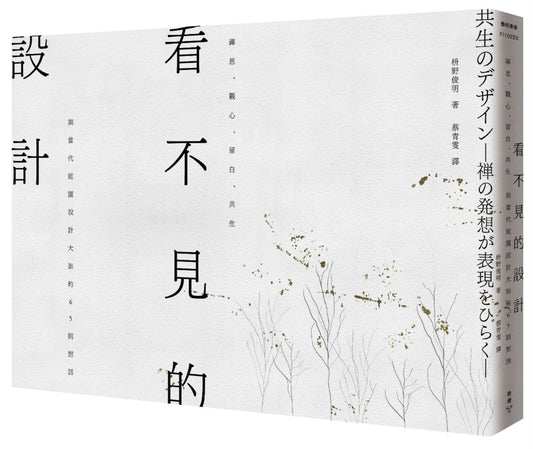 共生のデザイン―禅の発想が表現をひらく―
枡野俊明 著　蔡青雯 譯
禪思、觀心、留白、共生
看不見的
與當代庭園設計大師的65則對話
設計
藝術叢書
FI1022X
看不見的設計
禪思、觀心、留白、共生 與當代庭園設計大師的65則對話
枡野俊明 著
蔡青雯 譯